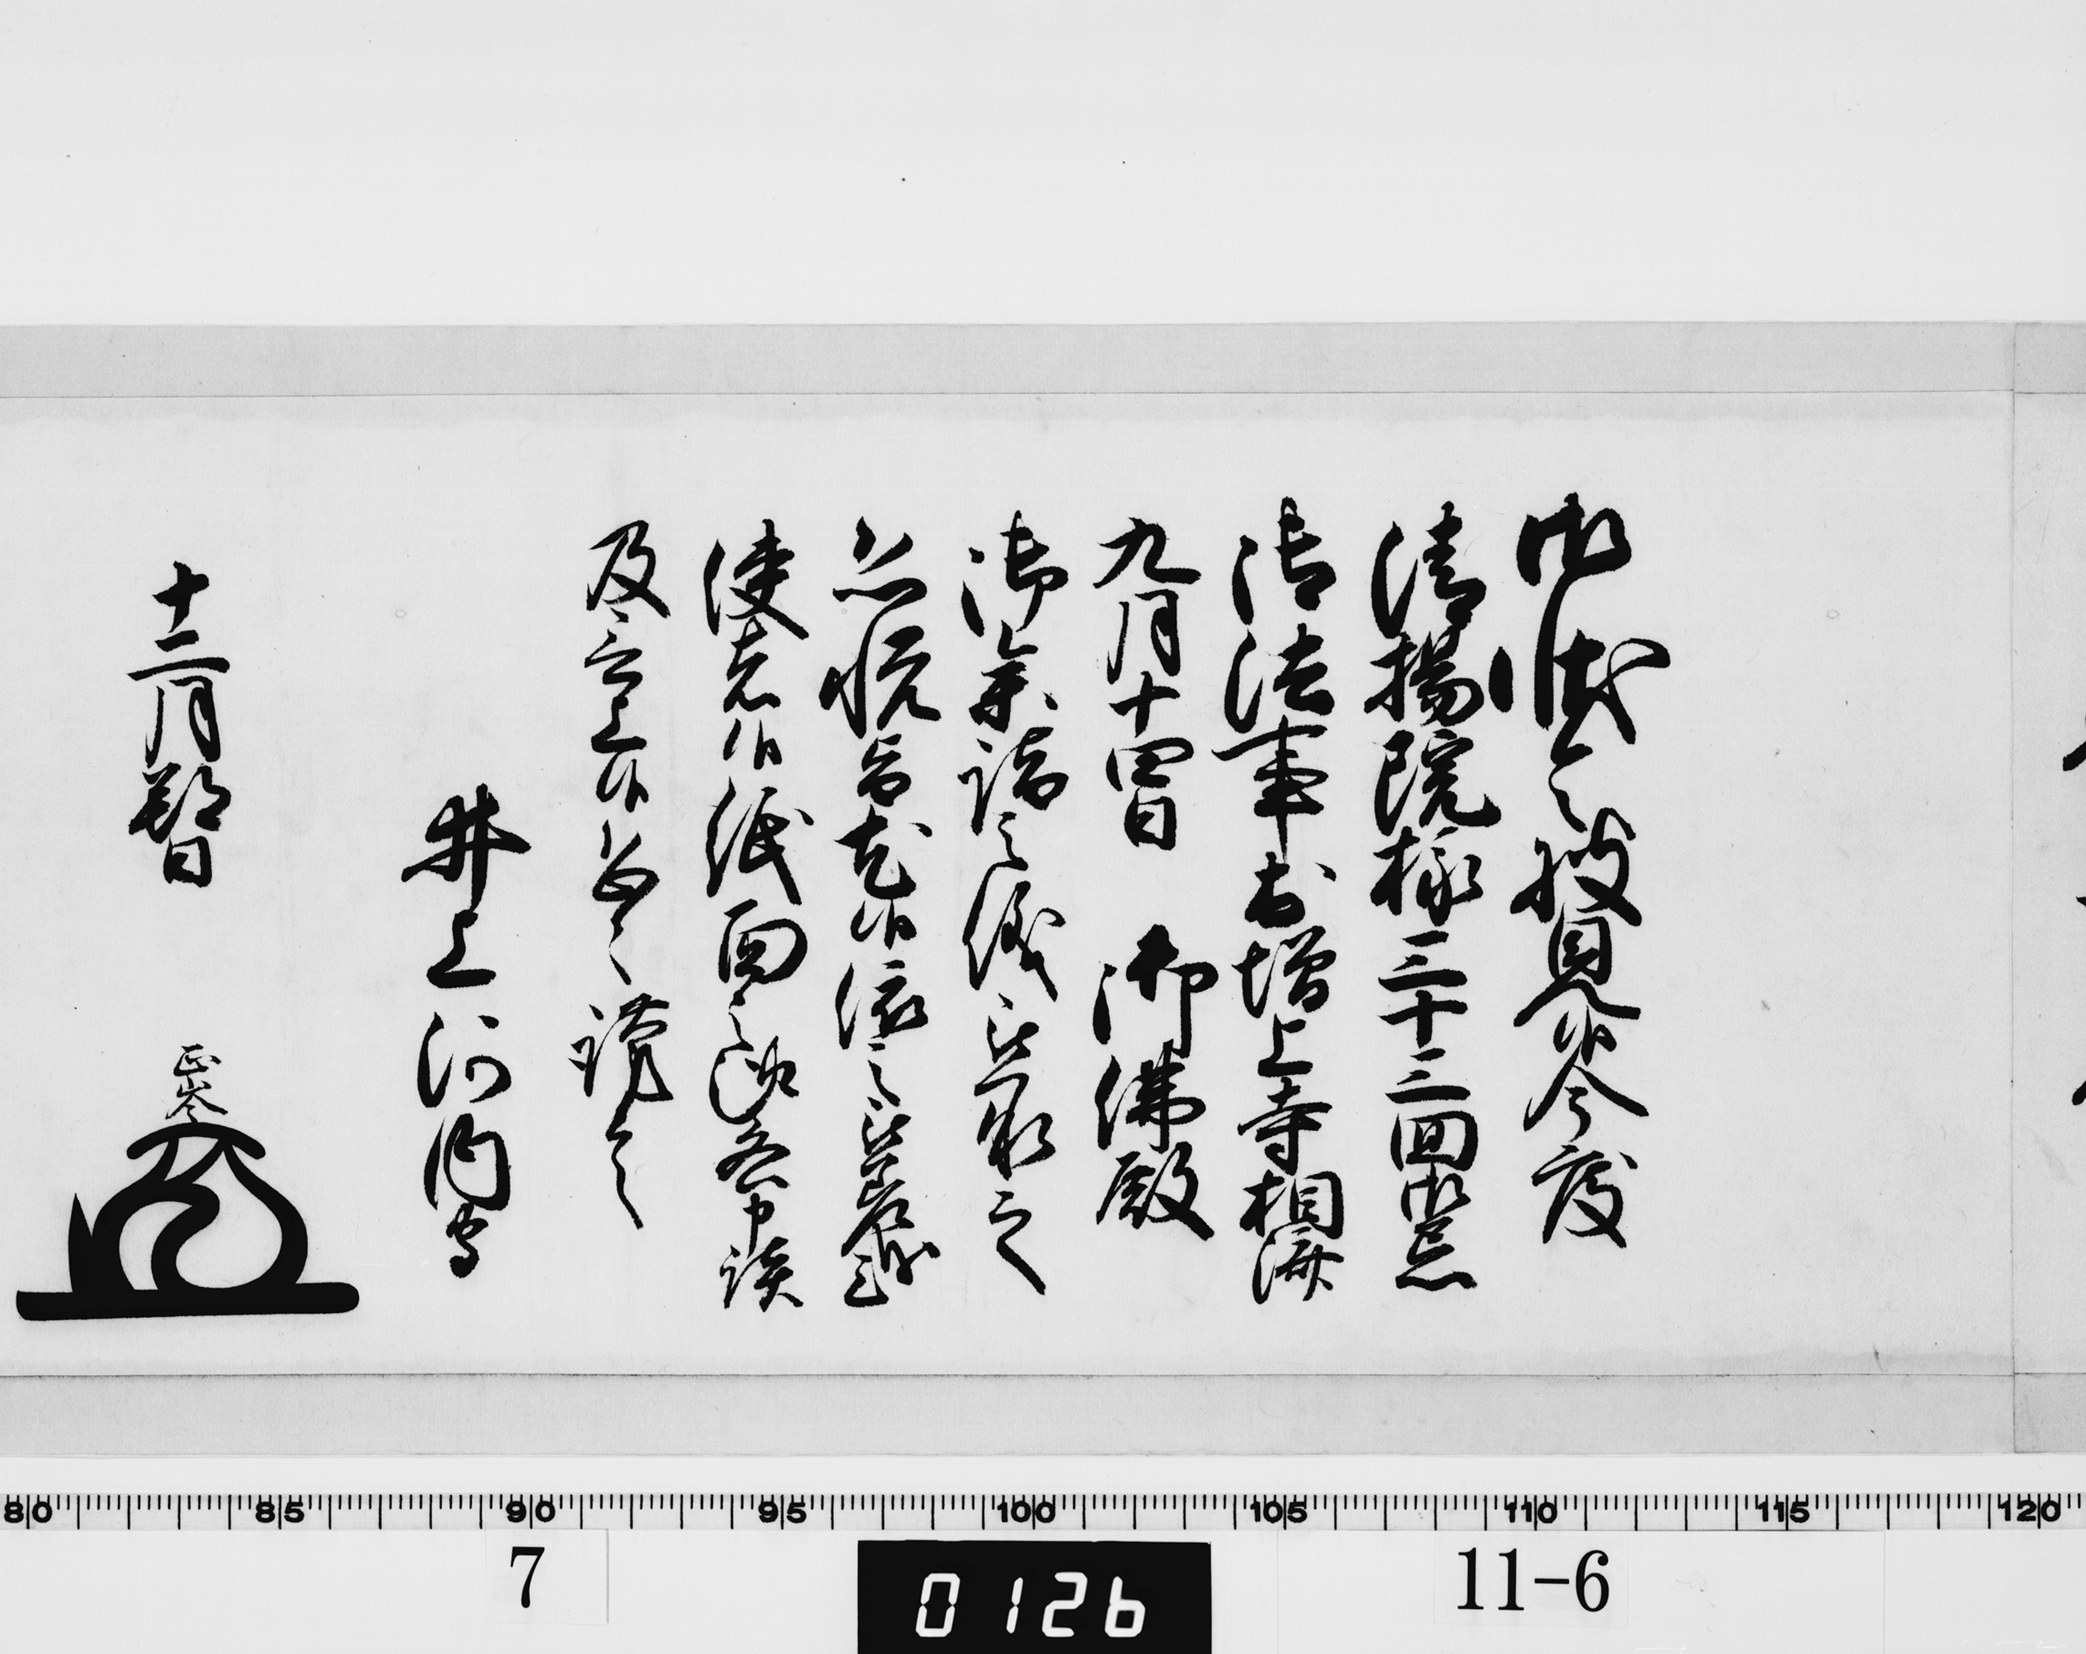 御状令披見候今度
清揚院様三十三回御忌
御法事於増上寺相済
九月十四日　御佛殿
御参詣之儀被承之
恐悦旨尤候依之被差越
使者候紙面之趣各申談
及言上候恐々謹言
井上河内守
十二月朔日
正岑
80 85 90 95 100 105 110 115 120
7
0126
11-6